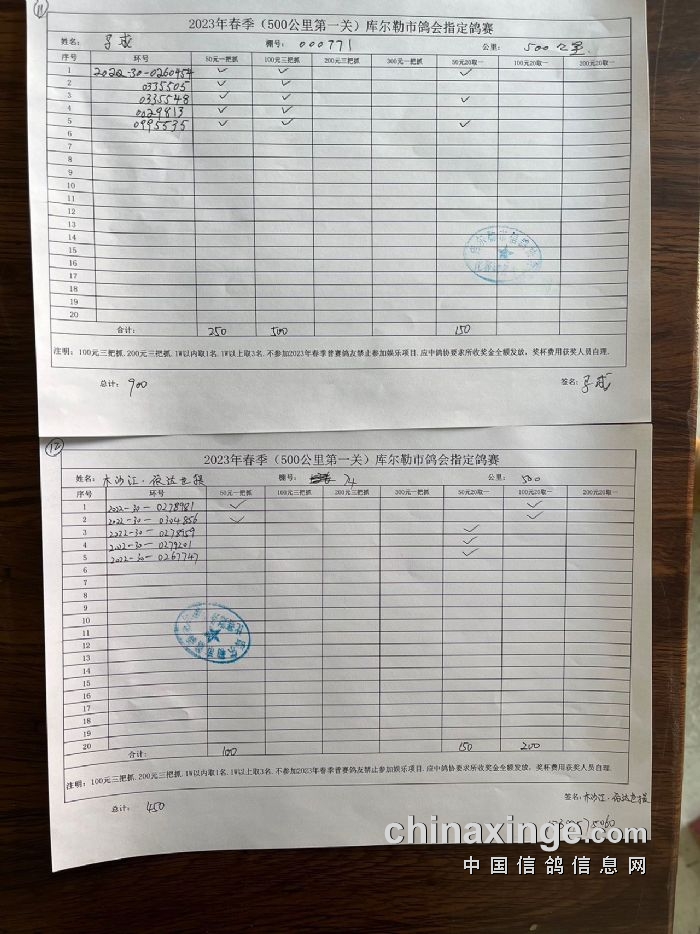 11
2023年春季（500公里第一关）库尔勒市鸽会指定鸽赛
姓名： 棚号： 000771 公里： 500公里
序号 环号 50元一把抓 100元三把抓 200元三把抓 300元一把抓 50元20取一 100元20取一 200元20取一
1 2022-30-0260454 ✓ ✓ ✓
2 0335505 ✓ ✓
3 0335548 ✓ ✓ ✓
4 0029813 ✓ ✓
5 0995535 ✓ ✓ ✓
6
7
8
9
10
11
12
13
14
15
16
17
18
19
20
合计： 250 500 150
注明：100元三把抓.200元三把抓.1W以内取1名.1W以上取3名.不参加2023年春季普赛鸽友禁止参加娱乐项目.应中鸽协要求所收奖金全额发放，奖杯费用获奖人员自理.
总计： 900 签名：
12
2023年春季（500公里第一关）库尔勒市鸽会指定鸽赛
姓名： 木沙江·依达也提 棚号： 24 公里： 500
序号 环号 50元一把抓 100元三把抓 200元三把抓 300元一把抓 50元20取一 100元20取一 200元20取一
1 2022-30-0278981 ✓ ✓
2 2022-30-0304856 ✓ ✓
3 2022-30-0278959 ✓
4 2022-30-0279201 ✓
5 2022-30-0267747 ✓
6
7
8
9
10
11
12
13
14
15
16
17
18
19
20
合计： 100 150 200
注明：100元三把抓.200元三把抓.1W以内取1名.1W以上取3名.不参加2023年春季普赛鸽友禁止参加娱乐项目.应中鸽协要求所收奖金全额发放，奖杯费用获奖人员自理.
总计： 450 签名：木沙江·依达也提
chinaxinge.com
中国信鸽信息网